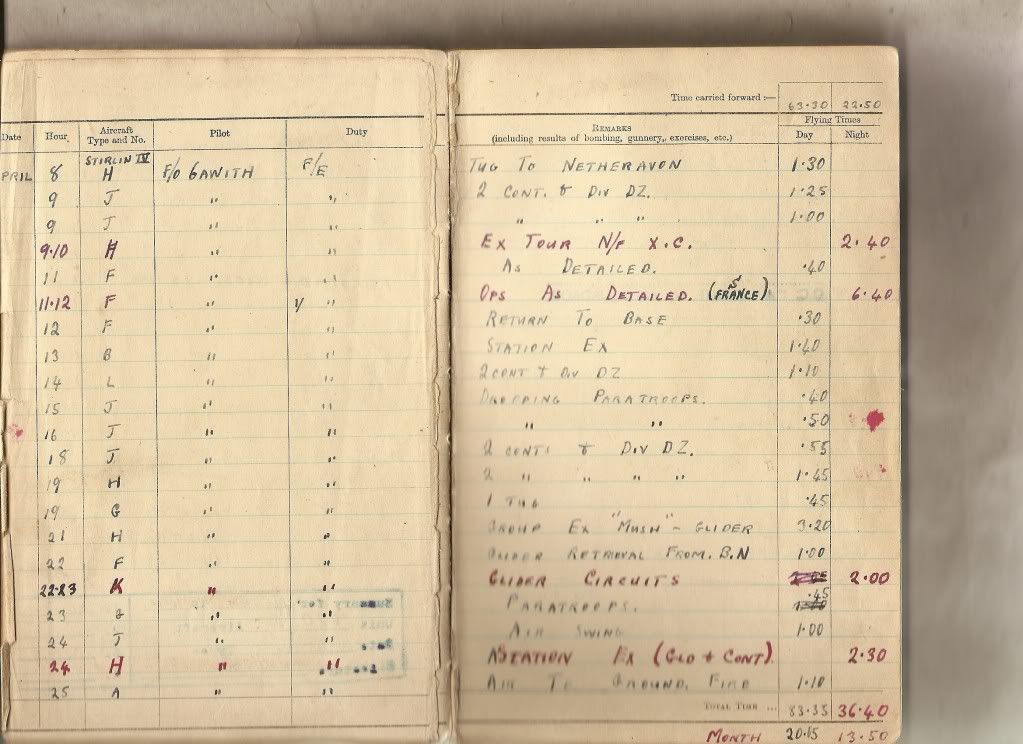 Time carried forward :— 63·30 22·50
Date Hour. Aircraft Type and No. Pilot Duty REMARKS (including results of bombing, gunnery, exercises, etc.) Flying Times Day Night
PRIL 8 STIRLIN IV H F/O GAWITH F/E TUG TO NETHERAVON 1·30
9 J " " 2 CONT. & DIV DZ. 1·25
9 J " " " " " 1·00
9·10 H " " EX TOUR N/F X.C. 2·40
11 F " " AS DETAILED. ·40
11·12 F " 1/ " OPS AS DETAILED. (S FRANCE) 6·40
12 F " " RETURN TO BASE ·30
13 B " " STATION EX 1·40
14 L " " 2 CONT & DIV DZ 1·10
15 J " " DROPPING PARATROOPS. ·40
16 J " " " " ·50
18 J " " 2 CONTS & DIV DZ. ·55
19 H " " 2 " " " " 1·45
19 G " " 1 TUG ·45
21 H " " GROUP EX "MUSH" - GLIDER 3·20
22 F " " GLIDER RETRIEVAL FROM. B.N 1·00
22·23 K " " GLIDER CIRCUITS 2·00
23 G " " PARATROOPS. ·45
24 J " " AIR SWING 1·00
24 H " " STATION EX (GLD + CONT). 2·30
25 A " " AIR TO GROUND. FIRE 1·10
TOTAL TIME ... 83·35 36·40
MONTH 20·15 13·50